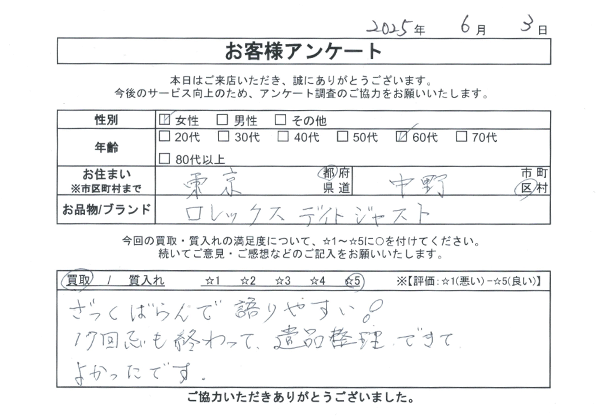 2025年 6月 3日
お客様アンケート
本日はご来店いただき、誠にありがとうございます。
今後のサービス向上のため、アンケート調査のご協力をお願いいたします。
性別 ☑女性 □男性 □その他
年齢 □20代 □30代 □40代 □50代 ☑60代 □70代
□80代以上
お住まい ※市区町村まで 東京 都府県道 中野 市町区村
お品物/ブランド ロレックス デイトジャスト
今回の買取・質入れの満足度について、☆1～☆5に○を付けてください。
続いてご意見・ご感想などのご記入をお願いいたします。
買取 / 質入れ ☆1 ☆2 ☆3 ☆4 ☆5 ※【評価:☆1(悪い)-☆5(良い)】
ざっくばらんで語りやすい!!
17回忌も終わって、遺品整理できて
よかったです。
ご協力いただきありがとうございました。